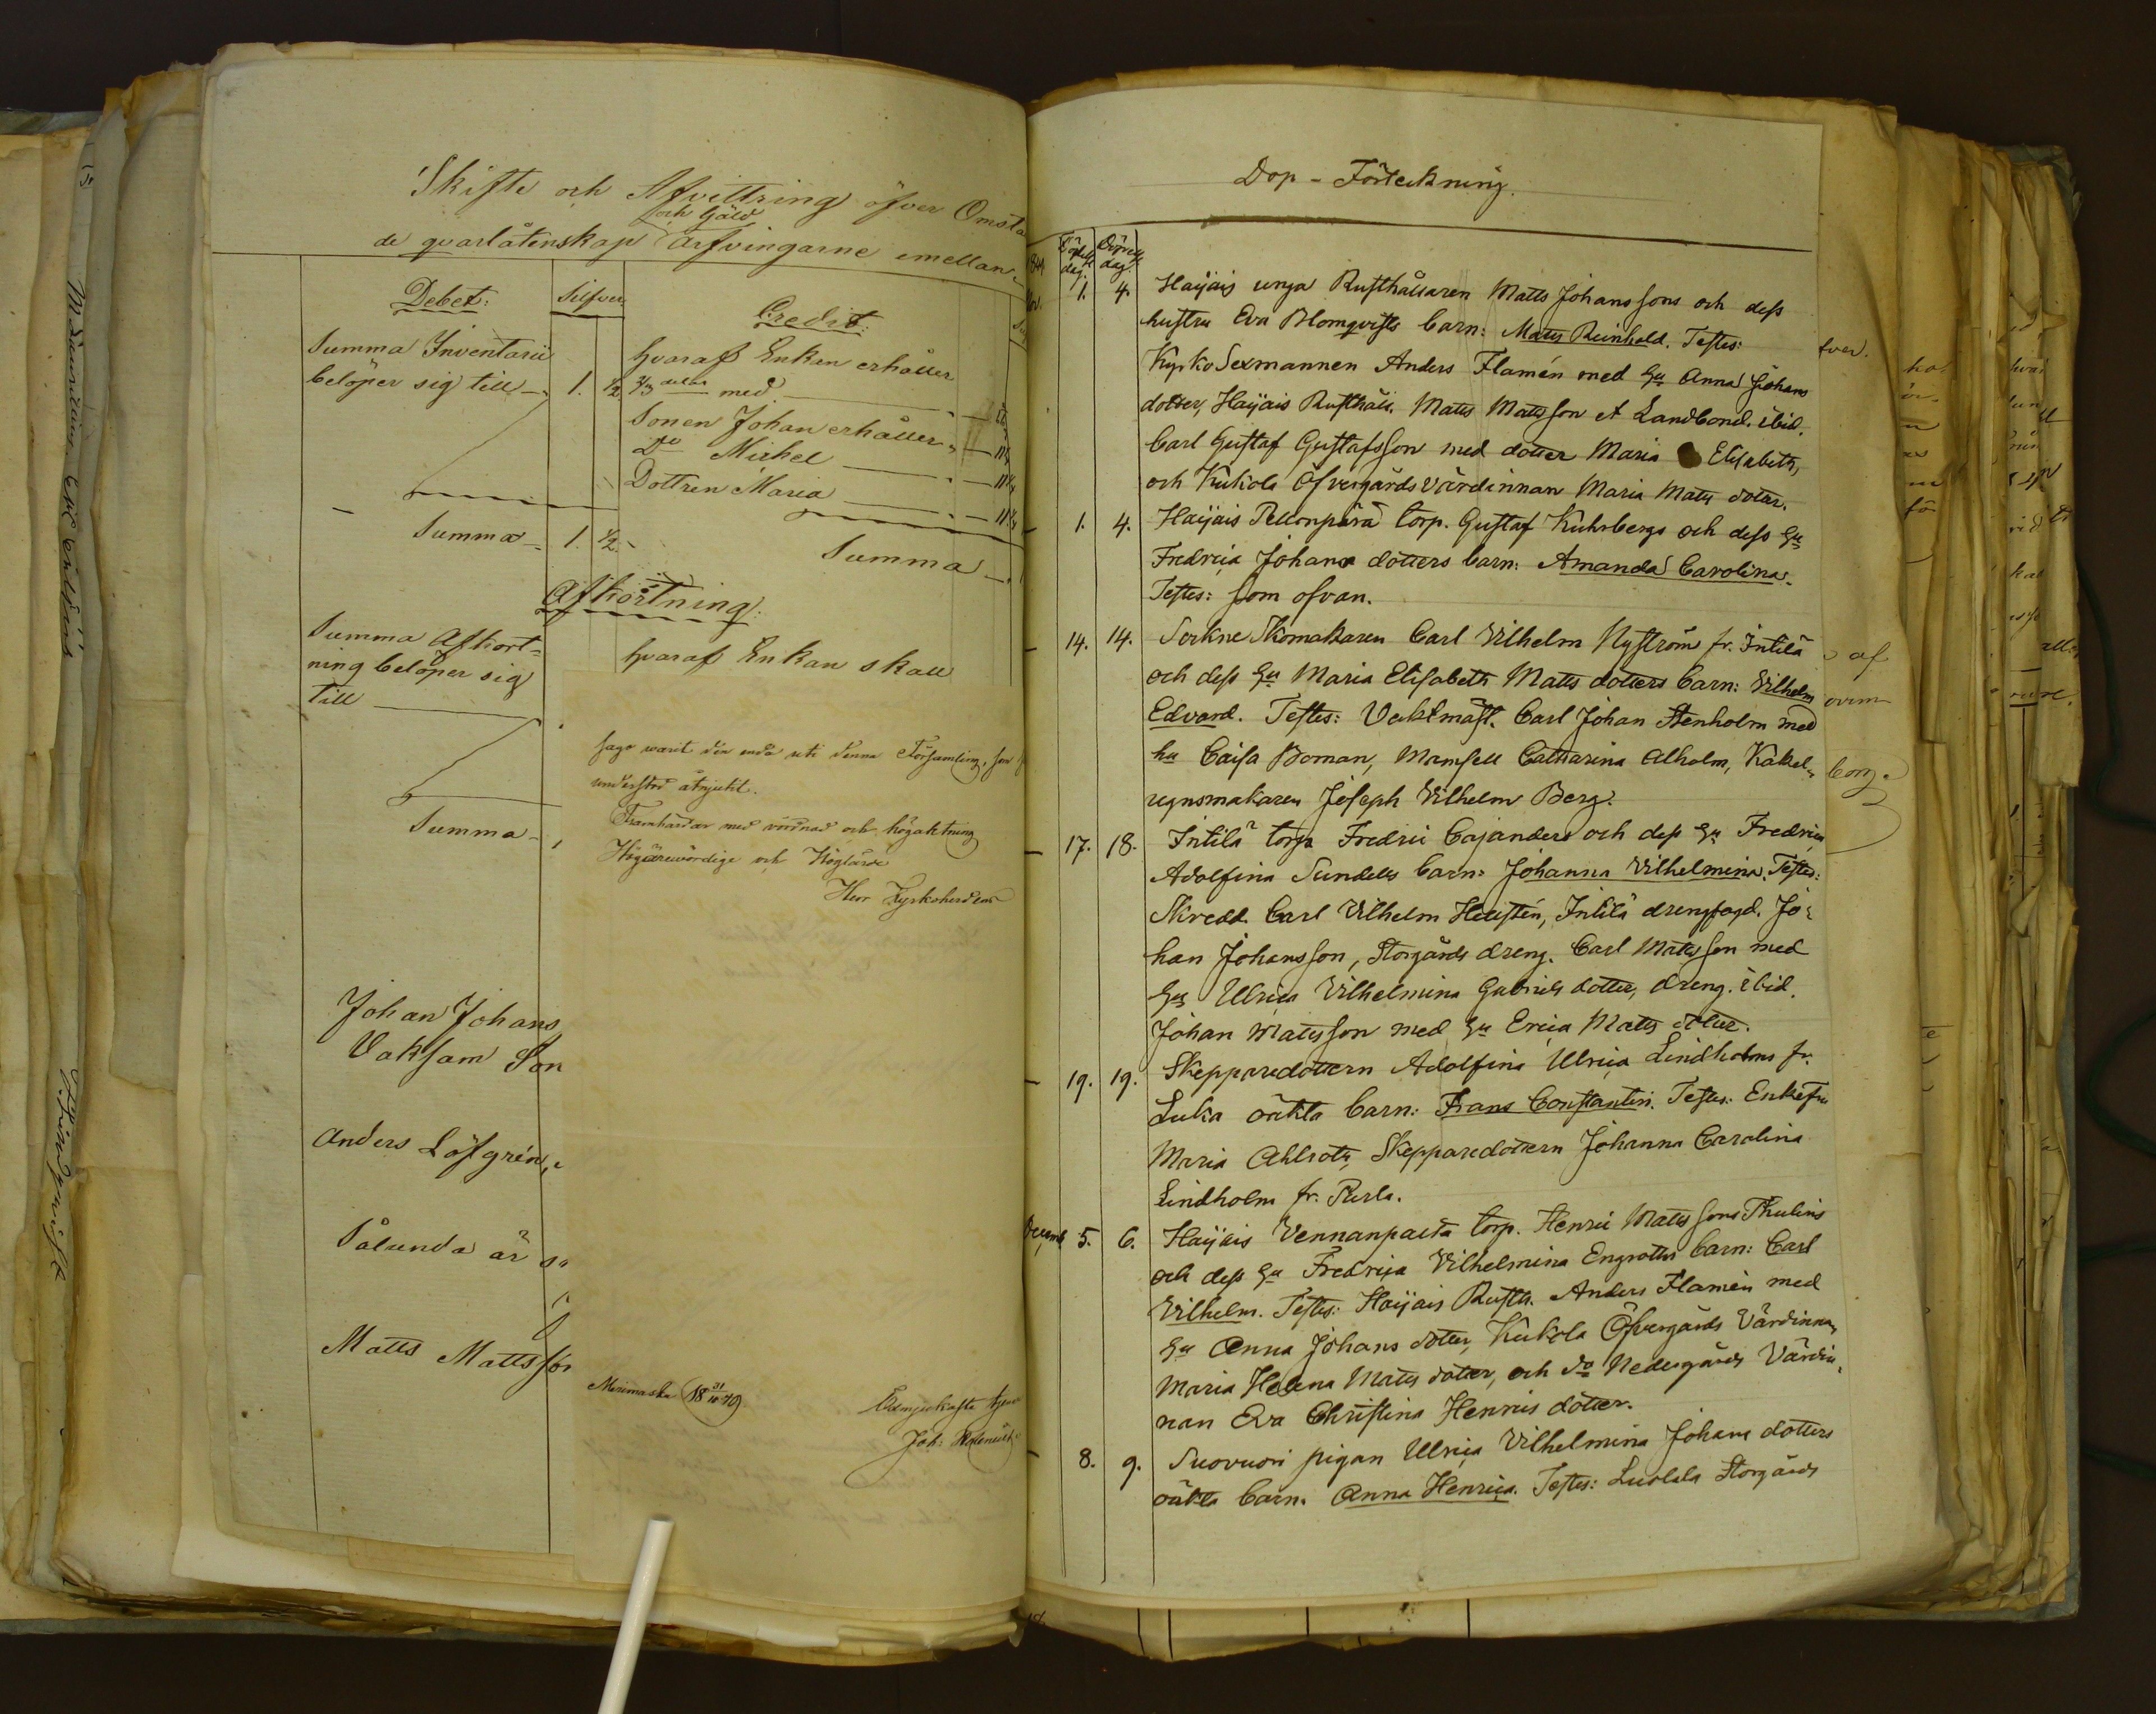 Skifte och Afvittring öfver Omsta
och Gäld
de qvarlåtenskap Arfvingarne emellan
Debet: Silfver Credit:
Summa Inventarii
belöper sig till 1. 1/2
hvaraf Enkan erhåller
2/3 delar med
Sonen Johan erhåller
Do Michel
Dottren Maria
Summa 1. 1/2 Summa
Afkortning:
Summa Afkort-
ning belöper sig
till
hvaraf Enkan skall
Summa
Johan Johans
Vaksam Son
Anders Löfgrén,
Sålunda är
Matts Mattsson
warit den enda uti denna Församling, som
understöd åtnjutit.
Framhärdar med vördnad och högaktning
Högärewördige och Höglärde
Herr Kyrkoherdens
Merimasku 18 31/10 49
Ödmjukaste tjen
Joh:
Dop-Förteckning.
1849
Födelse dag. Döpelse dag.
1. 4. Haijais unga Rusthållaren Matts Johanssons och dess
hustru Eva Blomqvists barn: Matts Reinhold. Testes:
KyrkoSexmannen Anders Flamén med Hu Anna Johans
dotter, Haijais Rusthåll. Matts Mattsson et Landbond. ibid.
Carl Gustaf Gustafsson med dotter Maria Elisabeth,
och Kukola Öfvergårds värdinnan Maria Matts dotter.
1. 4. Haijais Pellonpärä torp. Gustaf Kuhrbergs och dess Hu
Fredrica Johans dotters barn: Amanda Carolina.
Testes: som ofvan.
14. 14. Sockne Skomakaren Carl Vilhelm Nyström fr. Intilä
och dess Hu Maria Elisabeth Matts dotters barn: Vilhelm
Edvard. Testes: Vaktmäst. Carl Johan Stenholm med
hu Caisa Boman, Mamsell Catharina Alholm, Kakel-
ugnsmakaren Joseph Vilhelm Berg.
17. 18. Intilä torp. Fredric Cajanders och dess Hu Fredrica
Adolfina Sundells barn: Johanna Vilhelmina. Testes:
Skredd. Carl Vilhelm Hellstén, Intilä drengfogd. Jo-
han Johansson, Storgårds dreng. Carl Mattsson med
Hu Ulrica Vilhelmina Gabriels dotter, dreng. ibid.
Johan Mattsson med Hu Erica Matts dotter.
19. 19. Skepparedottern Adolfina Ulrica Lindholms fr.
Luka oäkta barn: Frans Constantin. Testes: Enkefru
Maria Ahlroth, Skepparedottern Johanna Carolina
Lindholm fr. Perla.
Decemb. 5. 6. Haijais Vennanpalta torp. Henric Mattssons Thulins
och dess Hu Fredrica Vilhelmina Engroths barn: Carl
Vilhelm. Testes: Haijais Rusth. Anders Flamén med
Hu Anna Johans dotter, Kukola Öfvergårds Värdinnan
Maria Helena Matts dotter, och do Nedergårds Värdin-
nan Eva Christina Henrics dotter.
8. 9. Suovuori pigan Ulrica Vilhelmina Johans dotters
oäkta barn: Anna Henrica. Testes: Luolala Storgårds